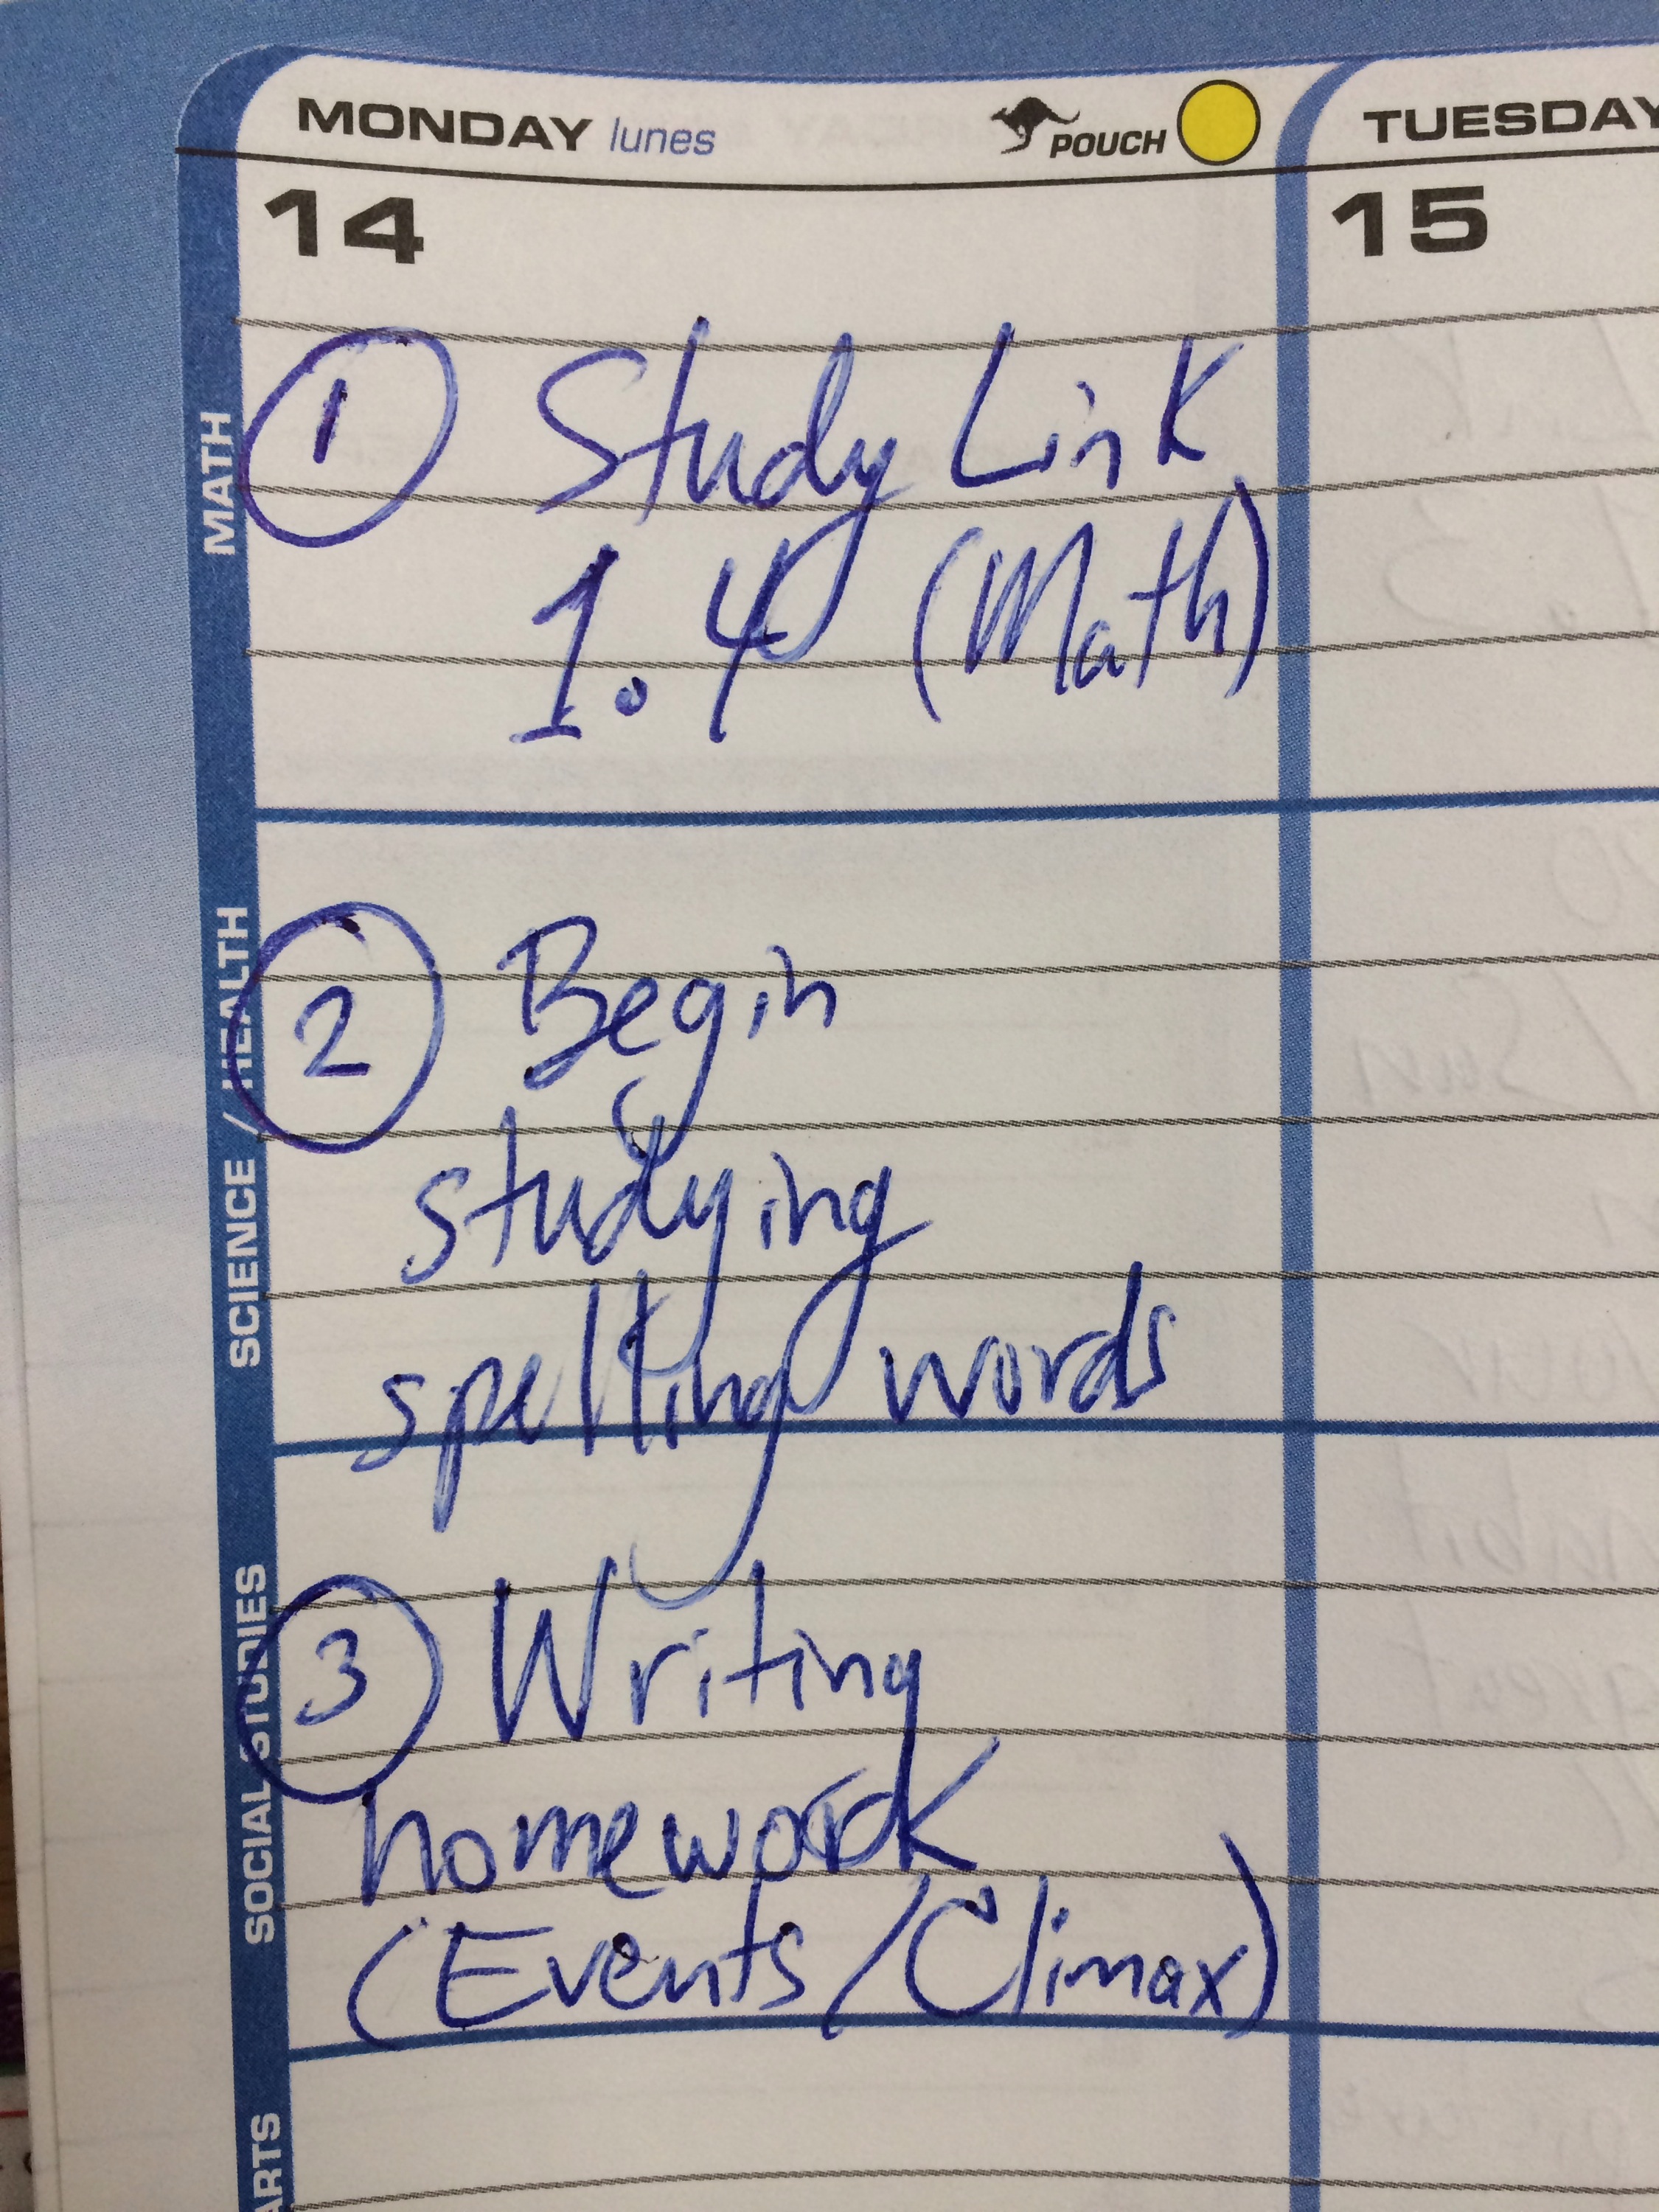 MONDAY lunes POUCH
TUESDAY
14
15
MATH
1 Study Link
1.4 (Math)
SCIENCE / HEALTH
2 Begin
studying
spelling words
SOCIAL STUDIES
3 Writing
homework
(Events/Climax)
ARTS